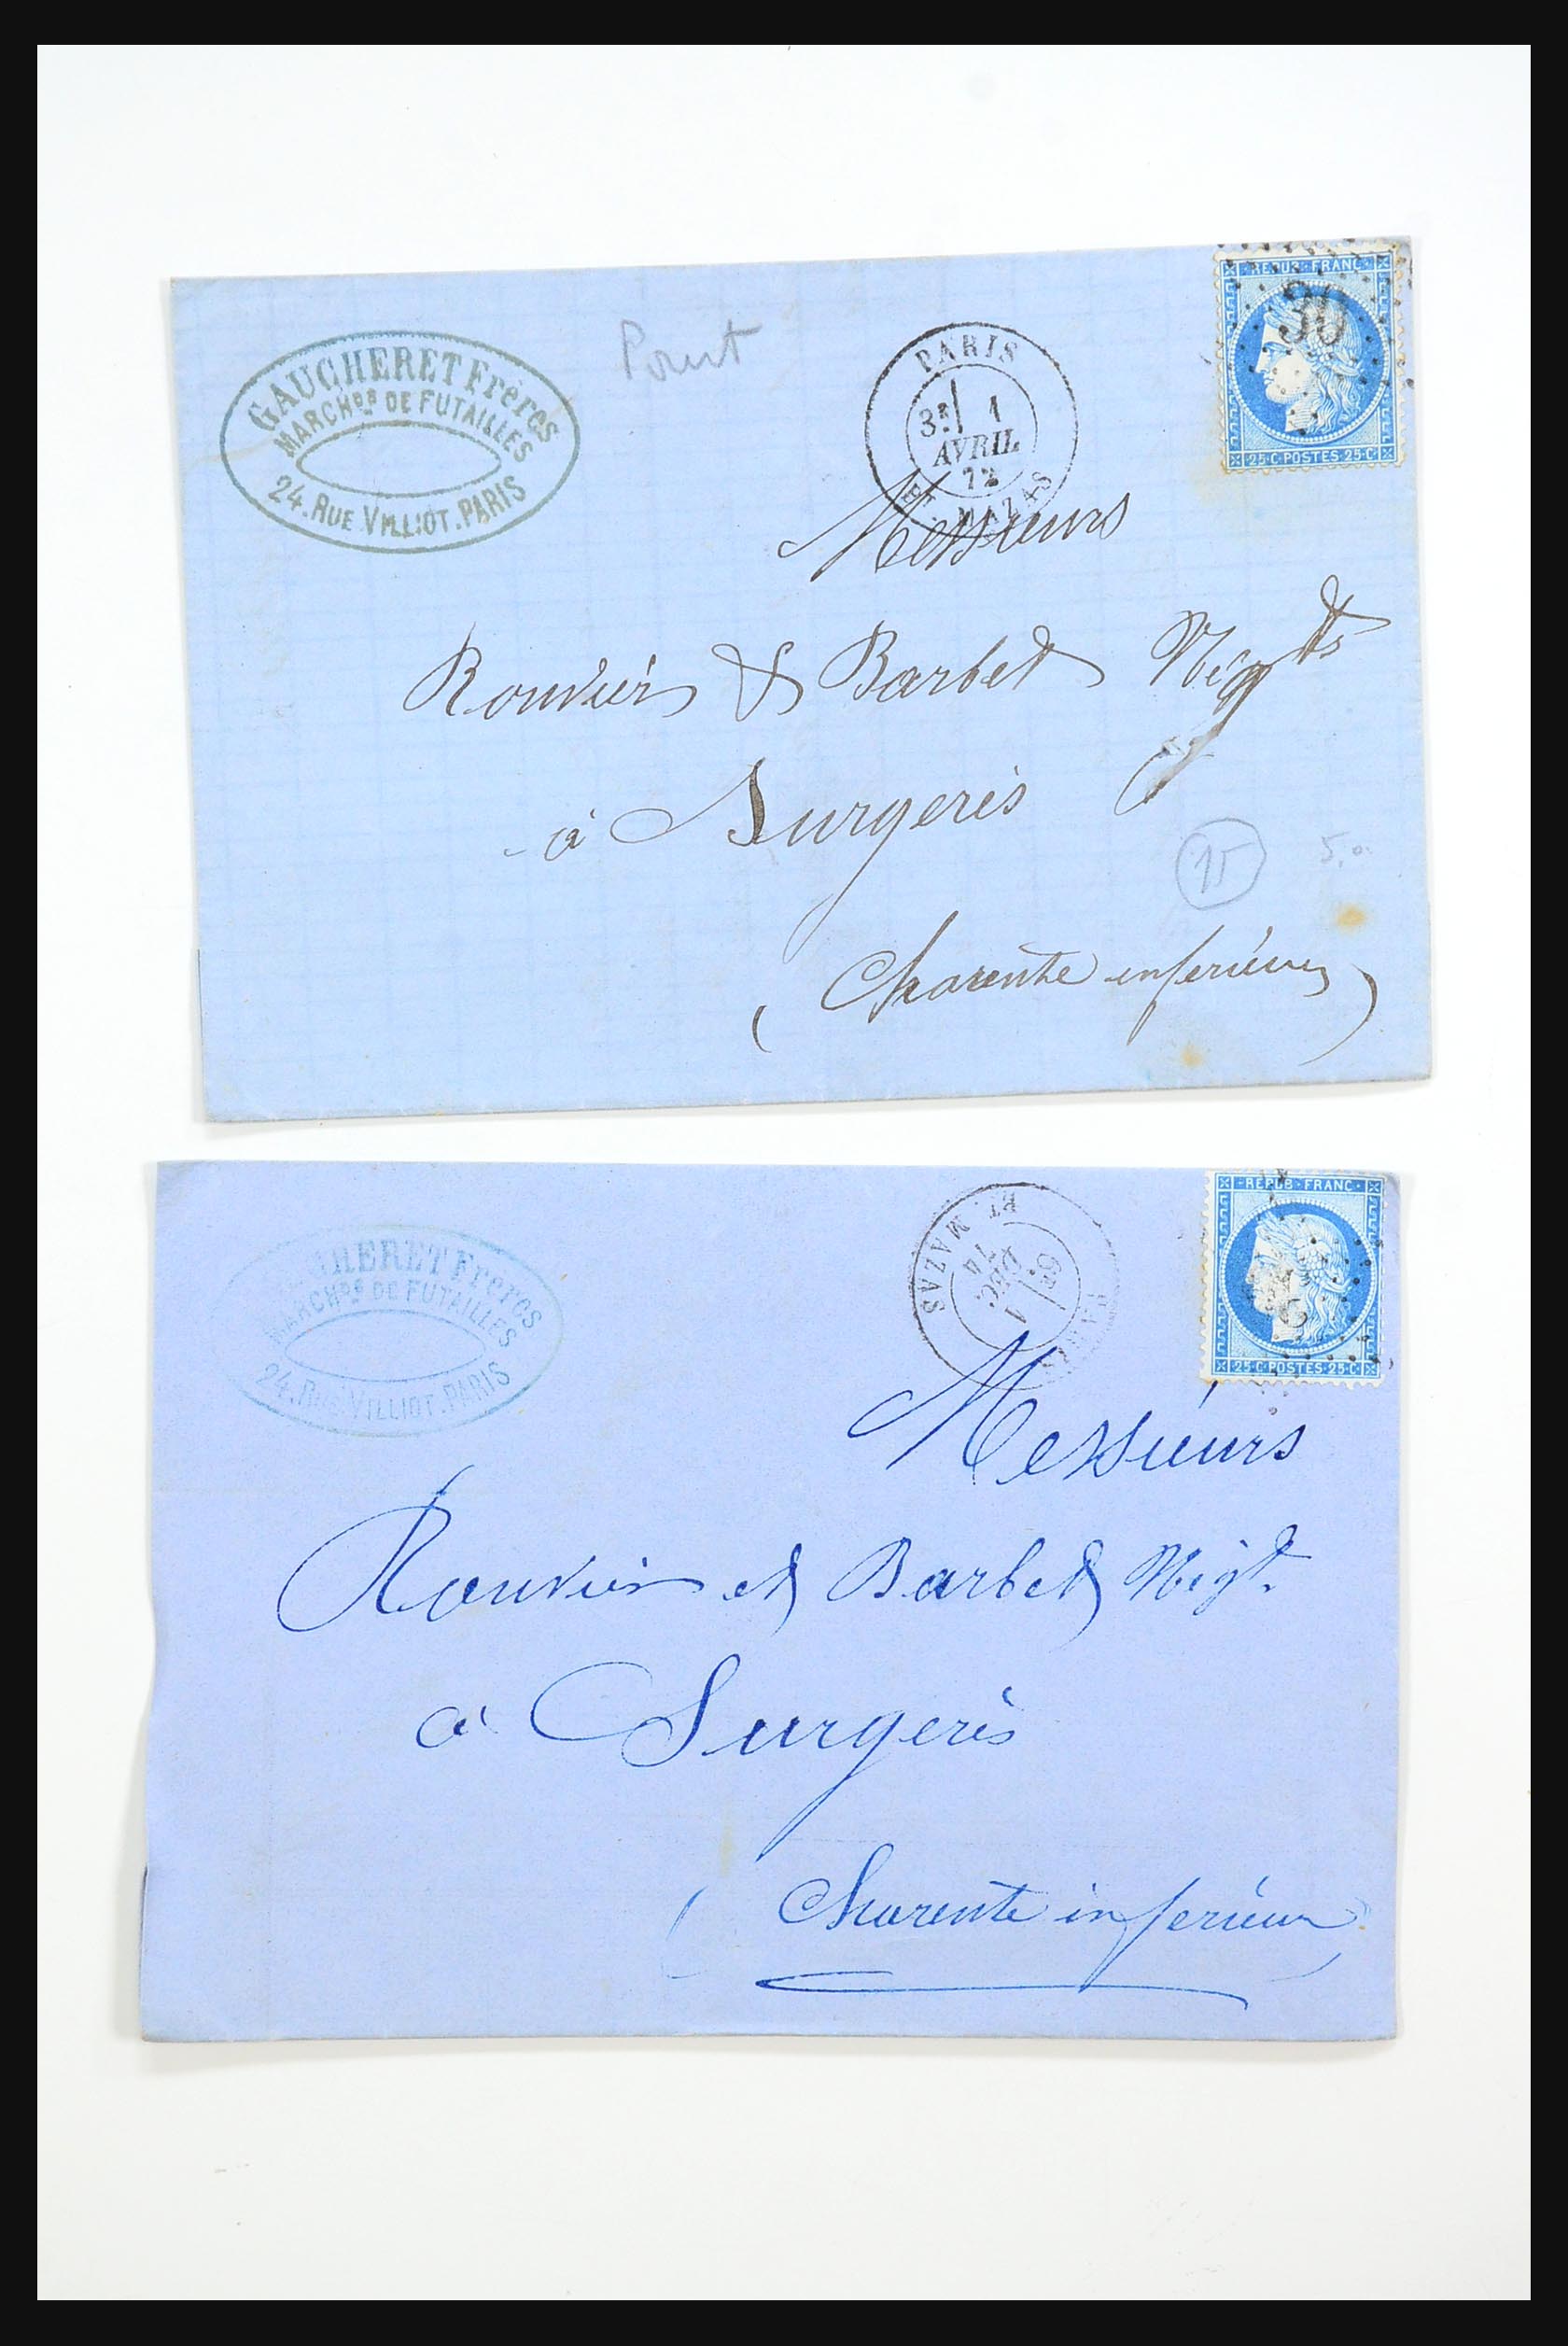 GAUCHERET Frères
MARCHDS DE FUTAILLES
24. RUE VILLIOT. PARIS
PARIS
3E 1
AVRIL
72
Bt. MAZAS
REPUB·FRANC·
30
25·C·POSTES·25·C·
Messieurs
Rouvier & Barbet Négts
à Surgerès
15
5,0
(Charente inferieure)
GAUCHERET Frères
MARCHDS DE FUTAILLES
24. RUE VILLIOT. PARIS
PARIS
6E 1
DEC.
74
BT. MAZAS
REPUB·FRANC·
25·C·POSTES·25·C·
Messieurs
Rouvier et Barbet Négt.
à Surgerès
(Charente inferieure)